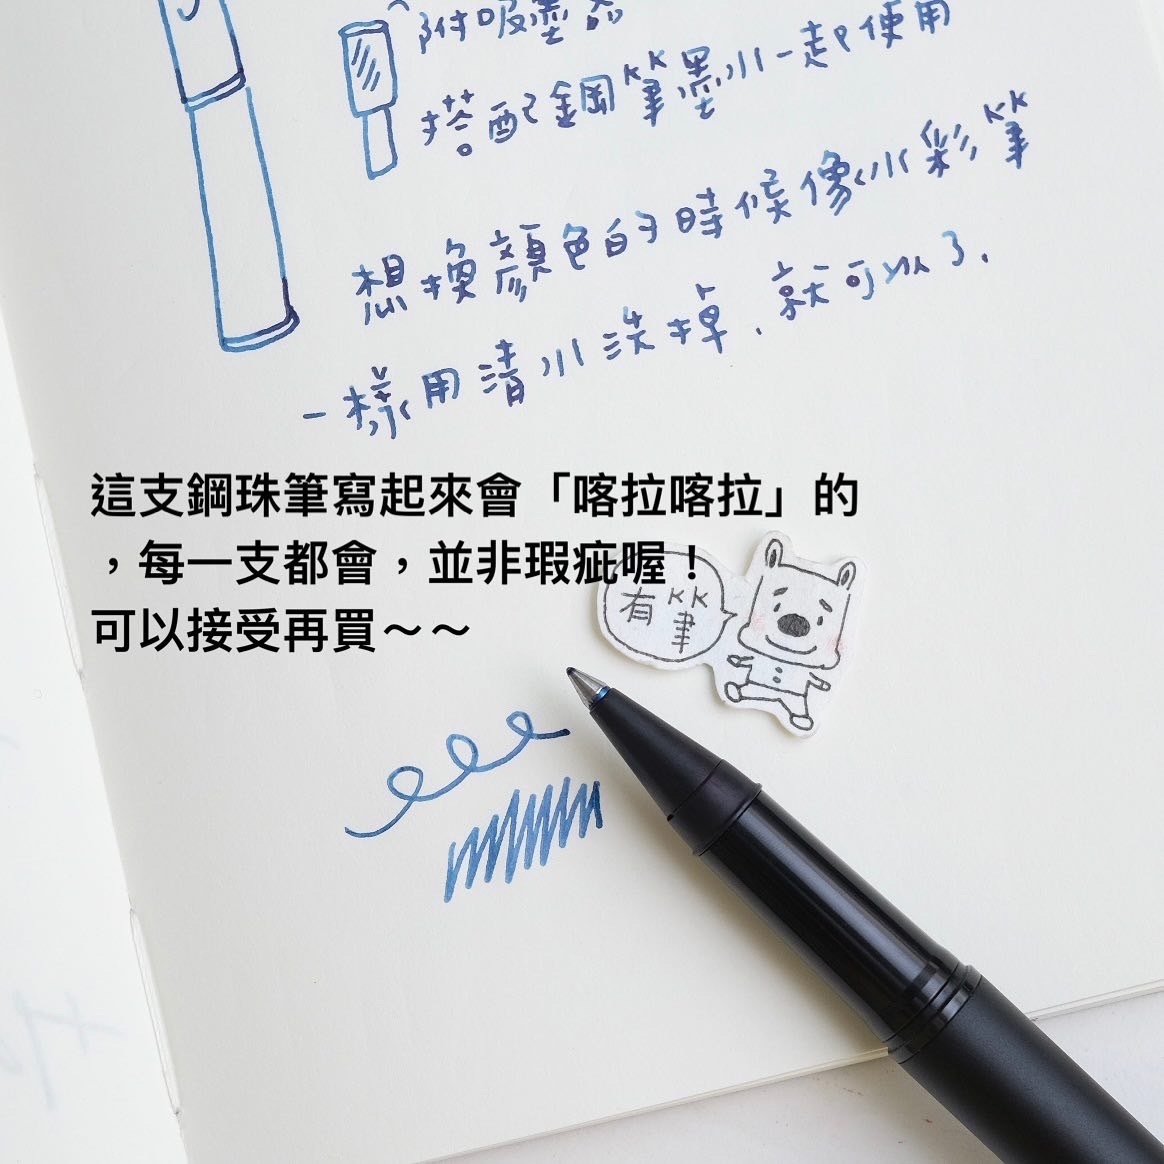 附吸墨器
搭配鋼筆墨水一起使用
想換顏色的時候像水彩筆
一樣用清水洗掉，就可以了．
這支鋼珠筆寫起來會「喀拉喀拉」的
，每一支都會，並非瑕疵喔！
可以接受再買～～
有筆